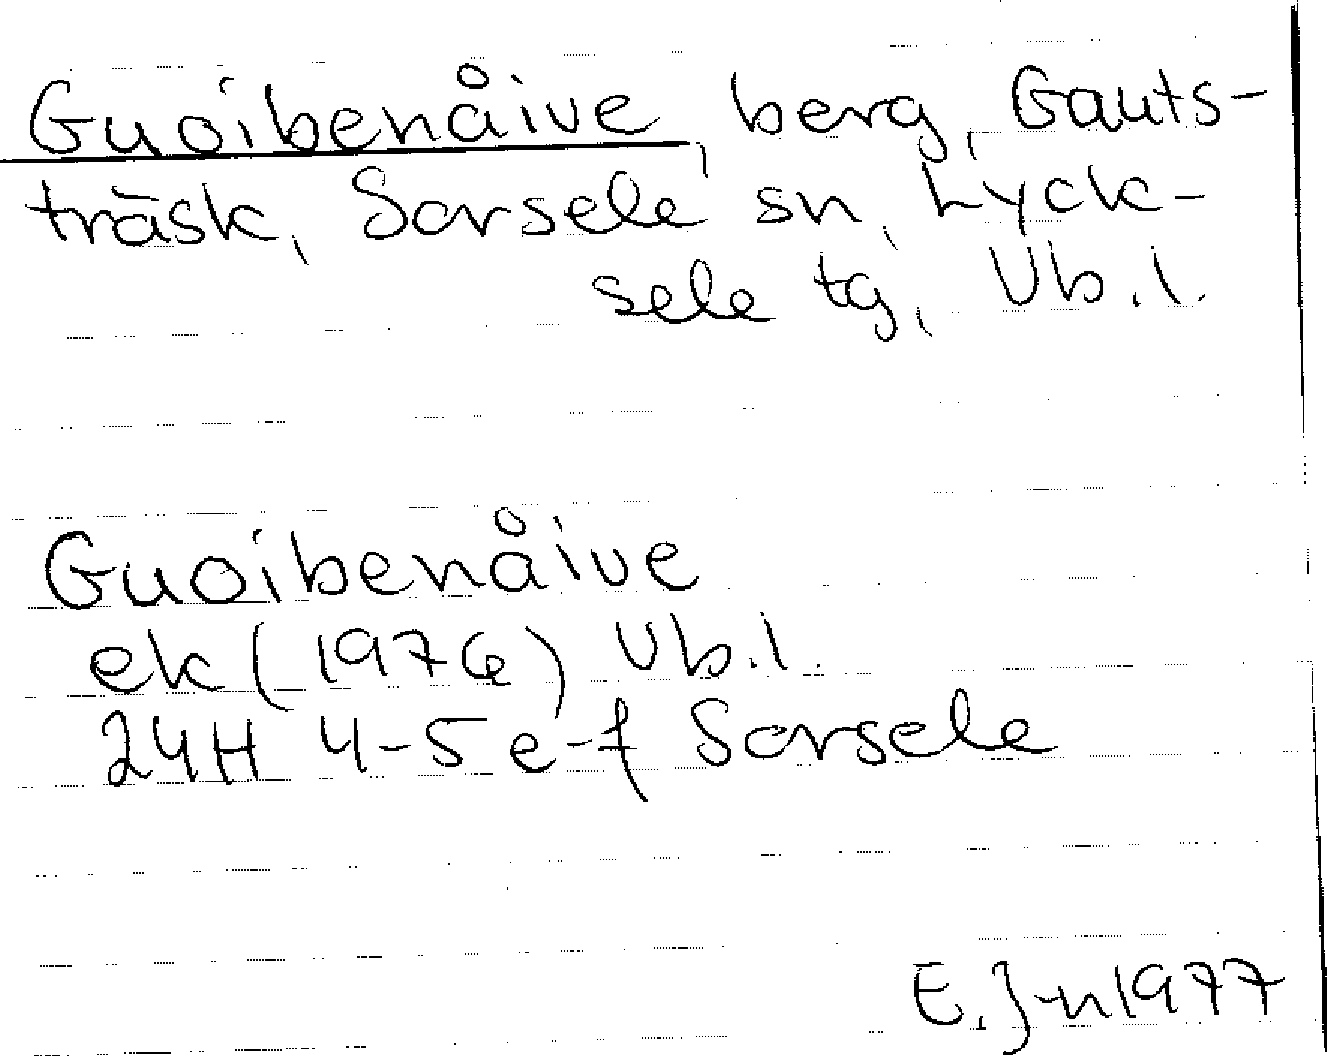 Guoibenåive, berg, Gauts-
träsk, Sorsele sn, Lyck-
sele tg, Vb.l.
Guoibenåive
ek (1976) Vb.l.
24H 4-5 e-f Sorsele
E.J-n 1977